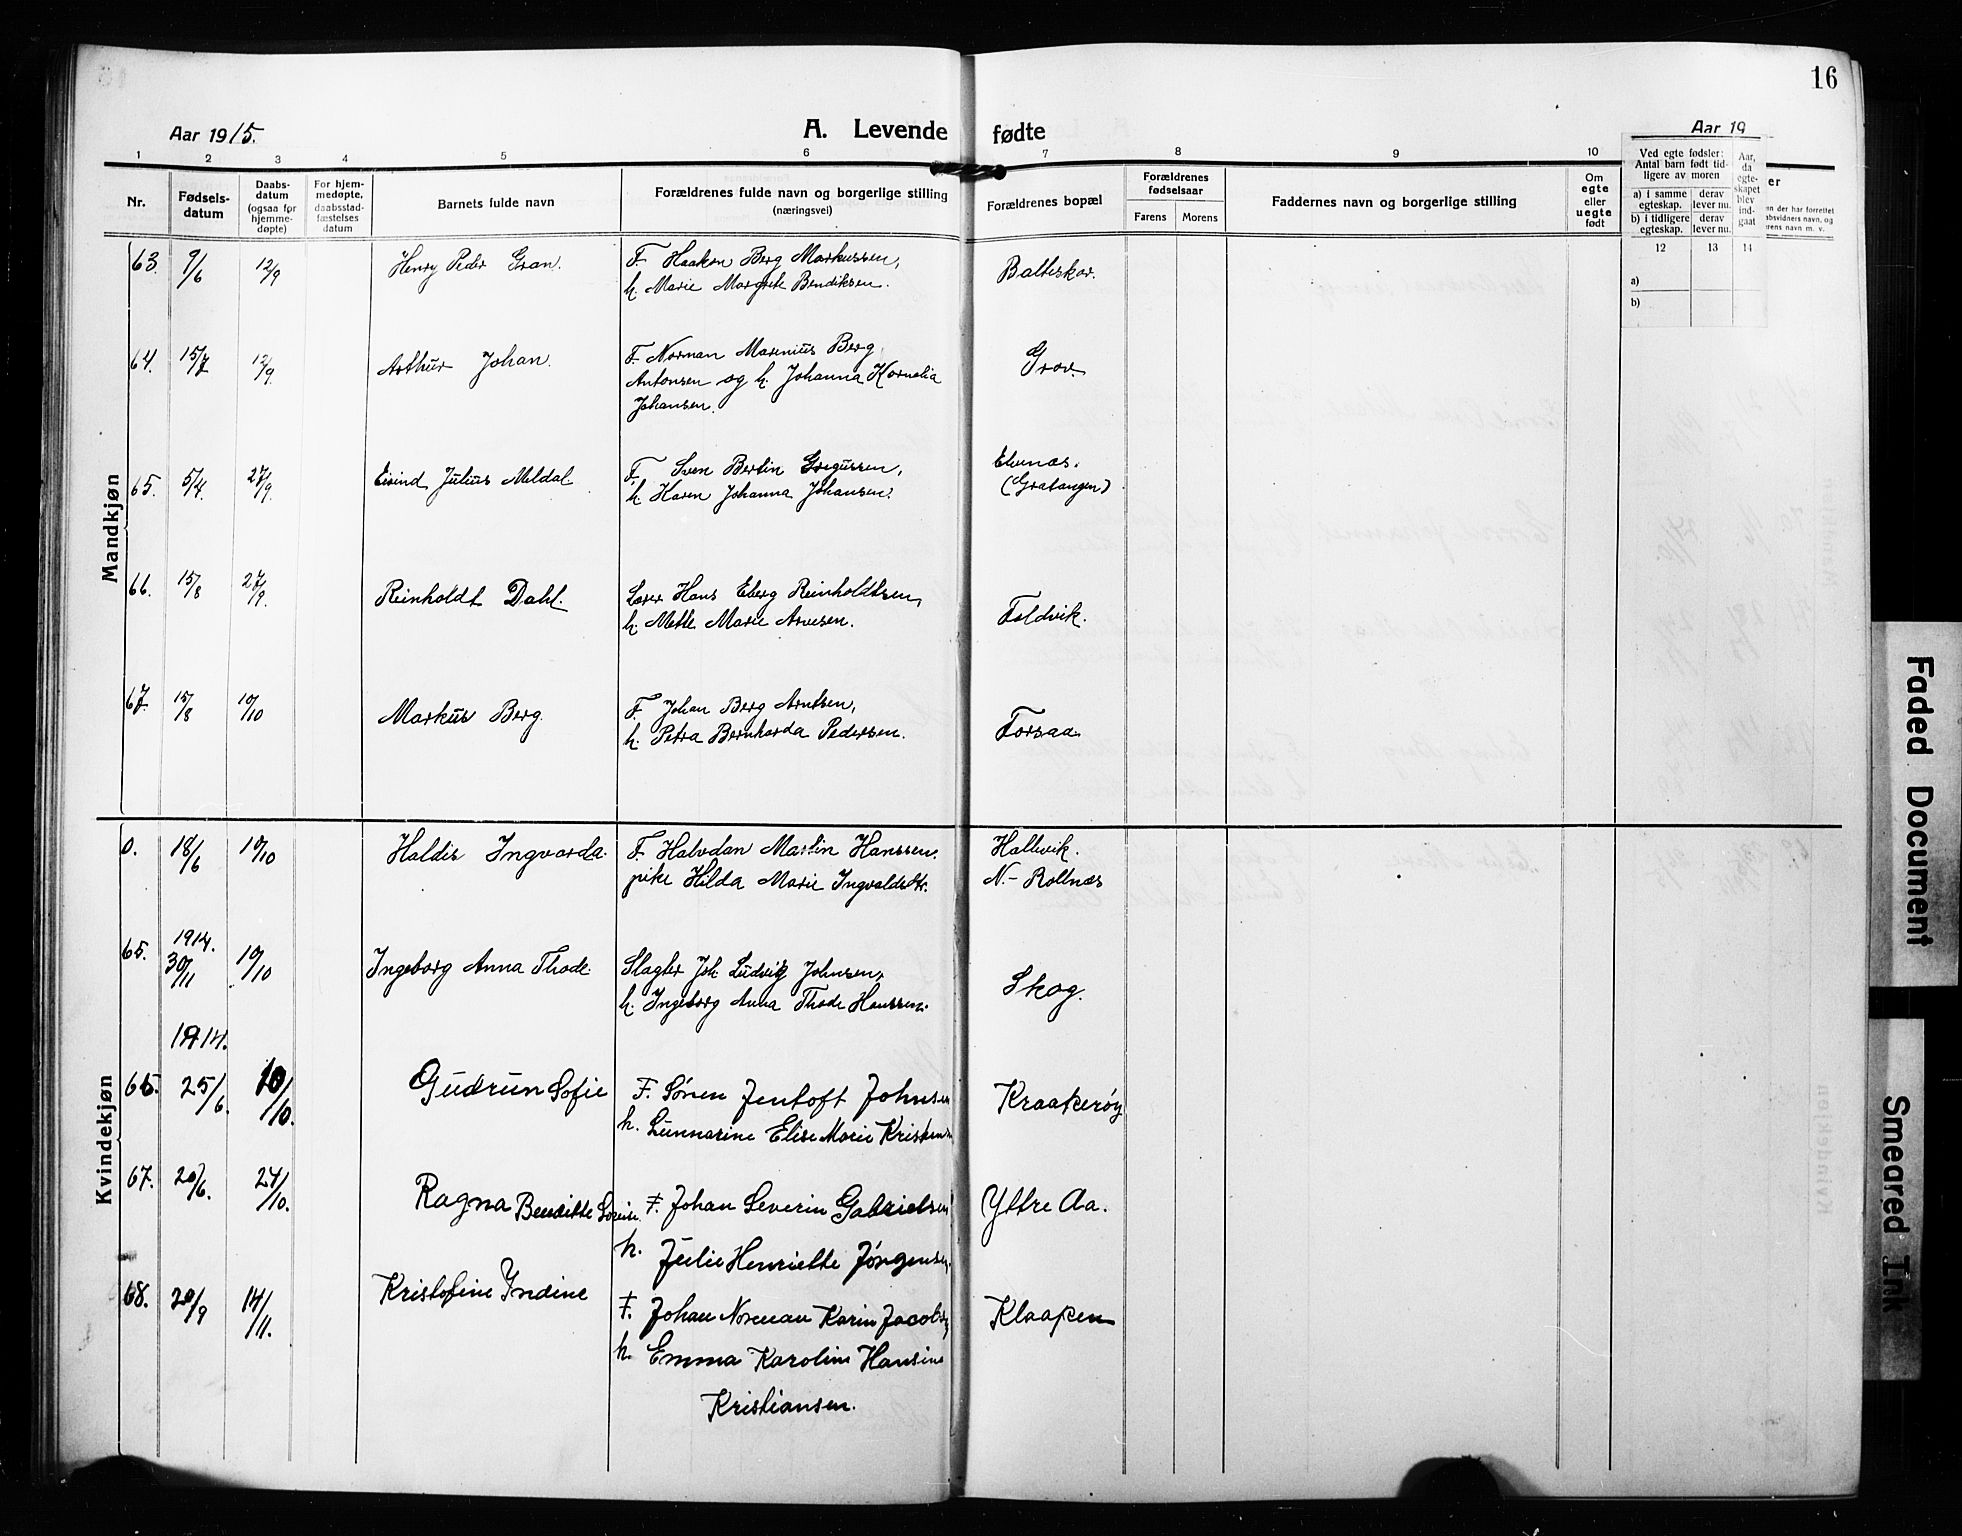 16
Aar 1915.
A. Levende fødte
Aar 19
1 2 3 4 5 6 7 8 9 10
Nr.
Fødsels-
datum
Daabs-
datum
(ogsaa for
hjemme-
døpte)
For hjem-
medøpte,
daabsstad-
fæstelses
datum
Barnets fulde navn
Forældrenes fulde navn og borgerlige stilling
(næringsvei)
Forældrenes bopæl
Forældrenes
fødselsaar
Farens Morens
Faddernes navn og borgerlige stilling
Om
egte
eller
uegte
født
Ved egte fødsler:
Antal barn født tid-
ligere av moren
a) i samme
egteskap.
derav
lever nu.
b) i tidligere
egteskap.
derav
lever nu.
Aar,
da
egte-
skapet
blev
ind-
gaat
12 13 14
a)
b)
er
en der har forrettet
absvidners navn, og
rens navn m. v.
Mandkjøn
63. 9/6 12/9 Henry Peder Gran. F. Haakon Berg Markussen, Balteskar.
h. Marie Margrete Bendiksen.
64. 15/7 12/9. Arthur Johan. F. Norman Marenius Berg Grov.
Antonsen og h. Johanna Kornelia
Johansen.
65. 5/4. 27/9. Eivind Julius Meldal F. Sven Bertin Gregussen, Elvenæs.
h. Karen Johanna Johansen. (Gratangen)
66. 15/8 27/9. Reinholdt Dahl. Lærer Hans Eberg Reinholdtsen,
h. Mette Marie Arvesen. Foldvik.
67. 15/8 10/10 Markus Berg. F. Johan Berg Arntsen,
h. Petra Bernharda Pedersen. Forsaa
Kvindekjøn
0. 18/6 10/10 Haldis Ingvarda. F. Halvdan Martin Hanssen. Hallvik.
pike Hilda Marie Ingvaldsdtr. N.- Rollnæs
65. 1914. 30/11 10/10 Ingeborg Anna Thode. Slagter Joh. Ludvig Johnsen,
h. Ingeborg Anna Thode Hanssen. Skog.
1914.
66. 25/6. 10/10. Gudrun Sofie F. Sören Jentoft Johnsen Kraakerøy
h. Gunnarine Elise Marie Kristensen
67. 20/6. 24/10. Ragna Benditte F. Johan Severin Gabrielsen Yttre Aa.
h. Julie Henriette Jörgensen.
68. 20/9 14/11. Kristofine Indine F. Johan Norman Karin Jacobsen Klaapen
h. Emma Karoline Hansine
Kristiansen.
Faded Document
Smeared Ink